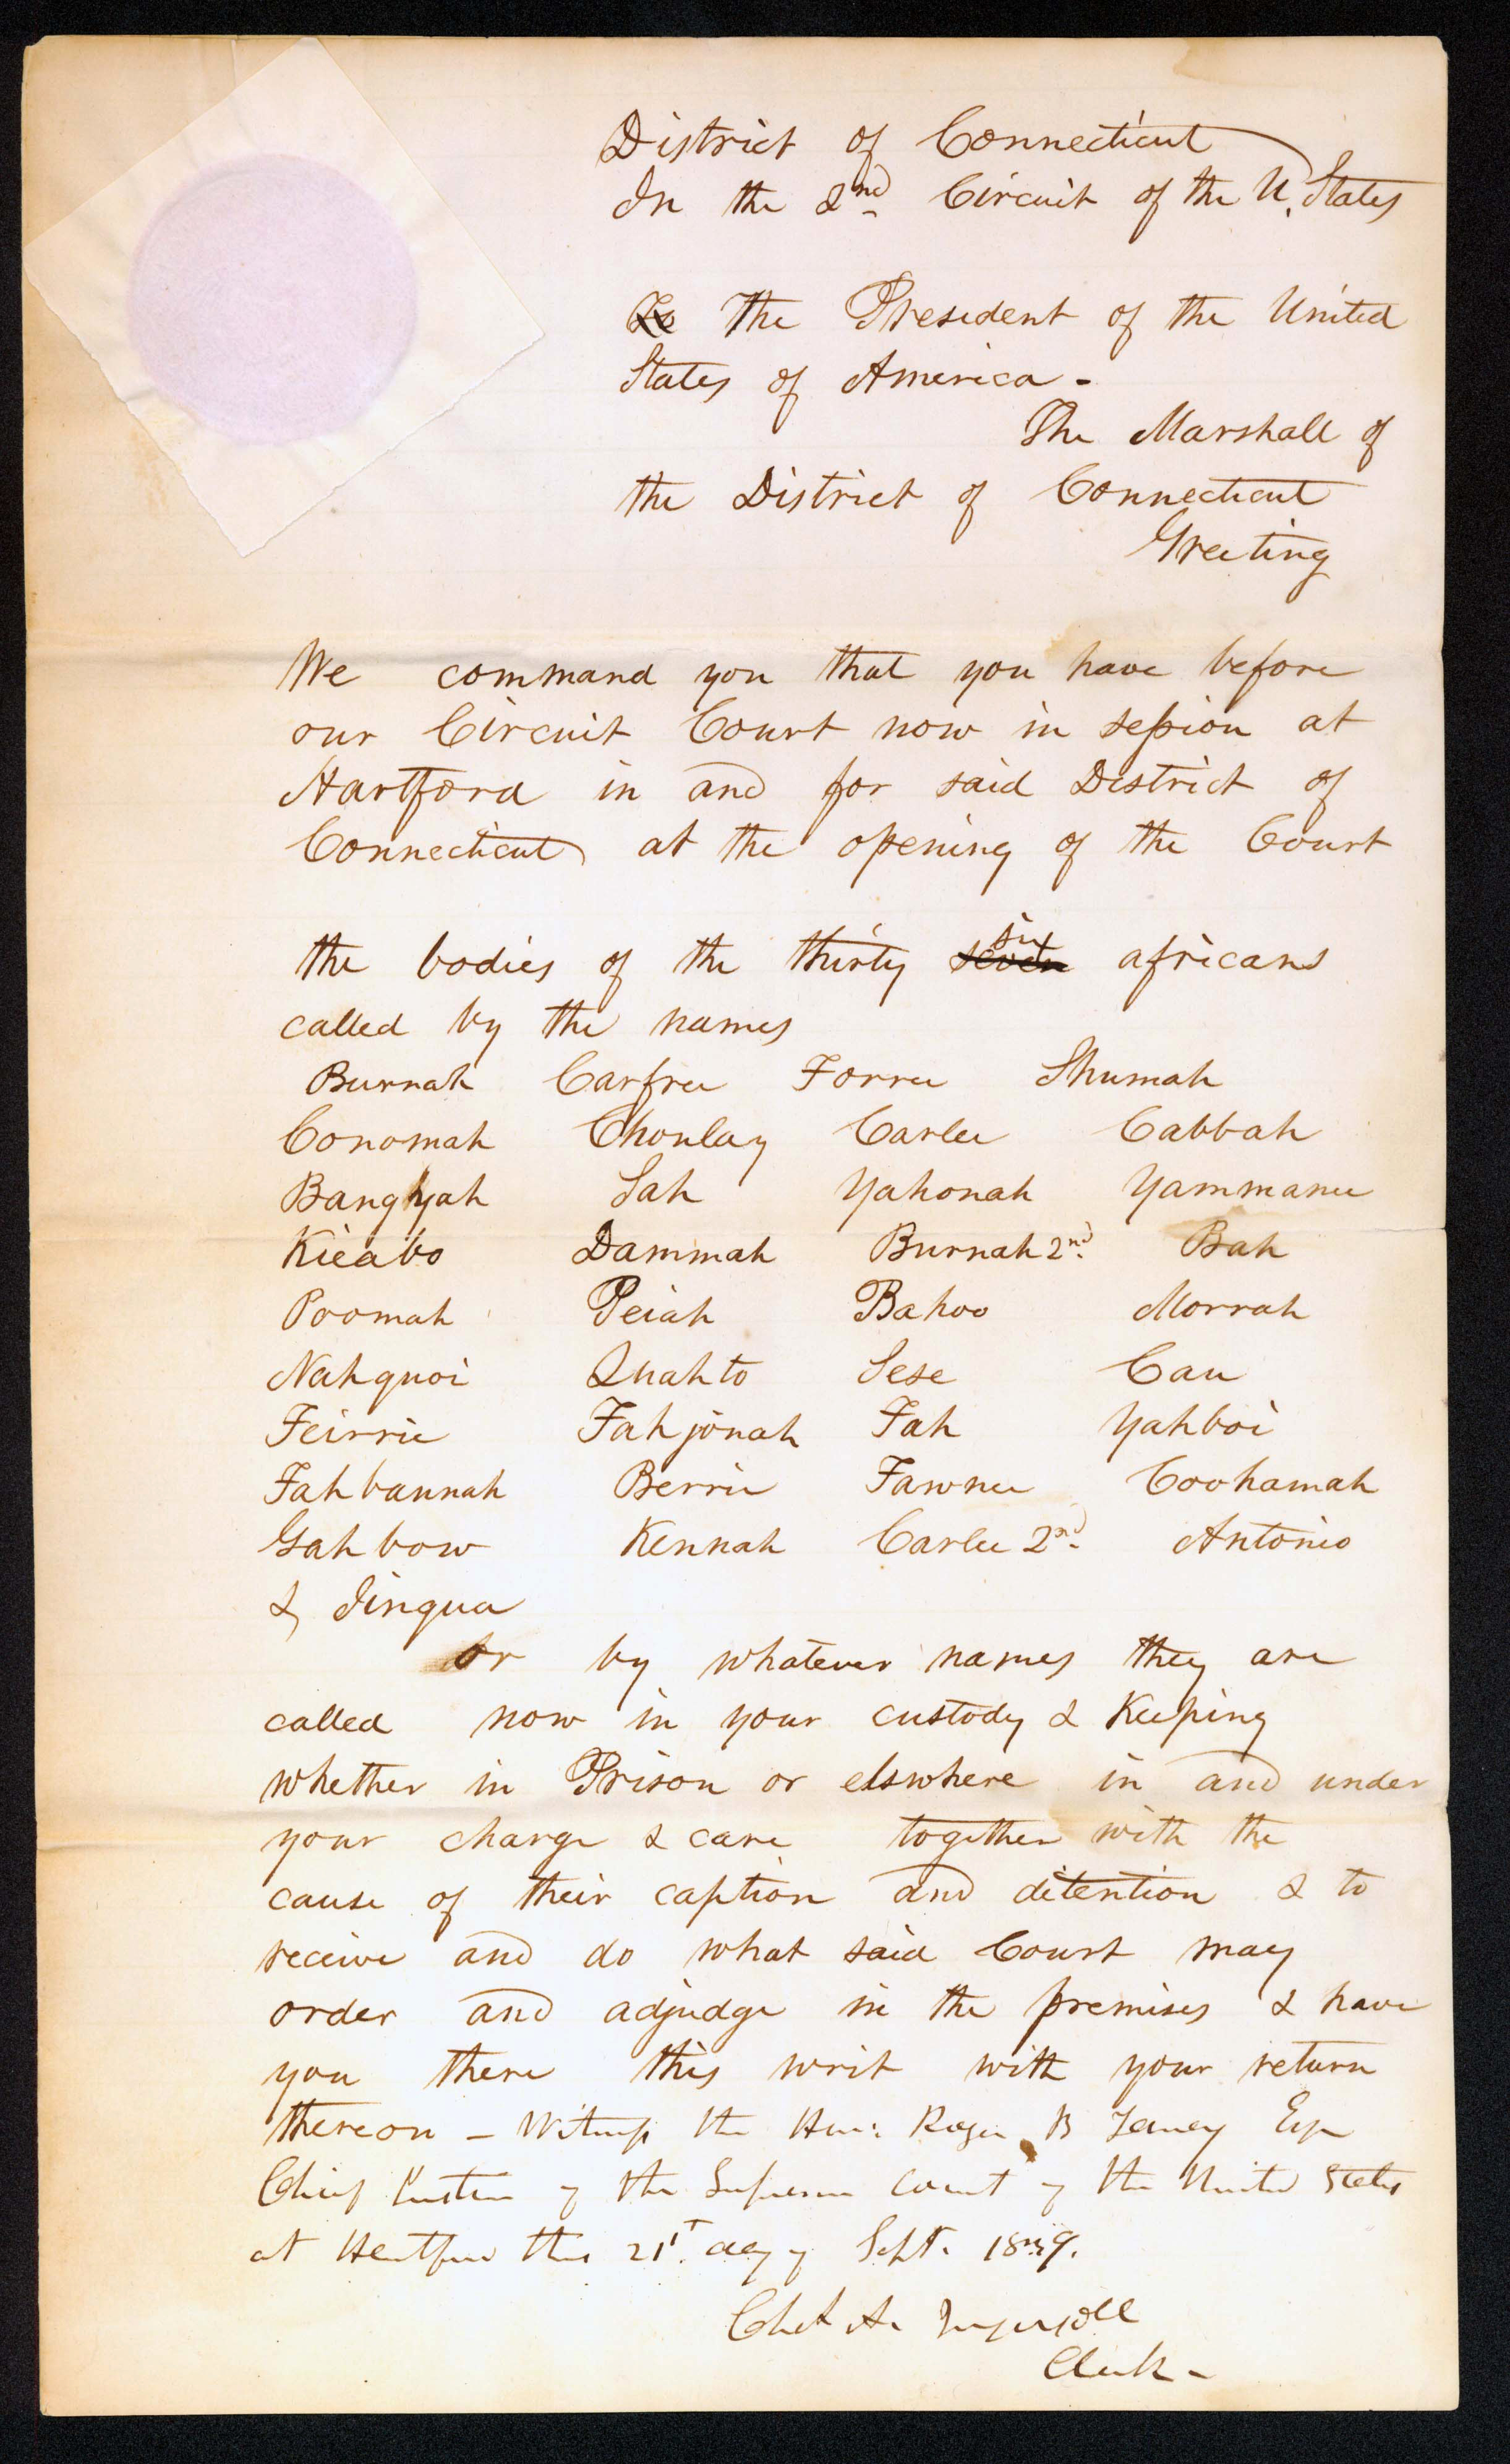 District of Connecticut
In the 2nd Circuit of the U. States
To The President of the United
States of America -
The Marshall of
the District of Connecticut
Greeting
We command you that you have before
our Circuit Court now in session at
Hartford in and for said District of
Connecticut at the opening of the Court
six
the bodies of the thirty seven africans
called by the names
Burnah Carfree Forree Shumah
Conomah Choulay Carlee Cabbah
Bangyah Sah Yahonah Yammanee
Kieabo Dammah Burnah 2nd Bah
Poomah Peiah Bahoo Morrah
Nahquoi Quahto Sese Cau
Feirrie Fahjonah Fah Yahboi
Fahbannah Berrie Fawnee Coohamah
Gahbow Kennah Carlee 2nd Antonio
& Jingua
or by whatever names they are
called now in your custody & Keeping
whether in Prison or elswhere in and under
your charge & care together with the
cause of their caption and detention & to
receive and do what said Court may
order and adjudge in the premises & have
you there this writ with your return
thereon - Witness the Hon: Roger B Taney Esqr
Chief Justice of the Supreme Court of the United States
at Hartford this 21st. day of Sept. 1839.
Chs A. Ingersoll
Clerk -